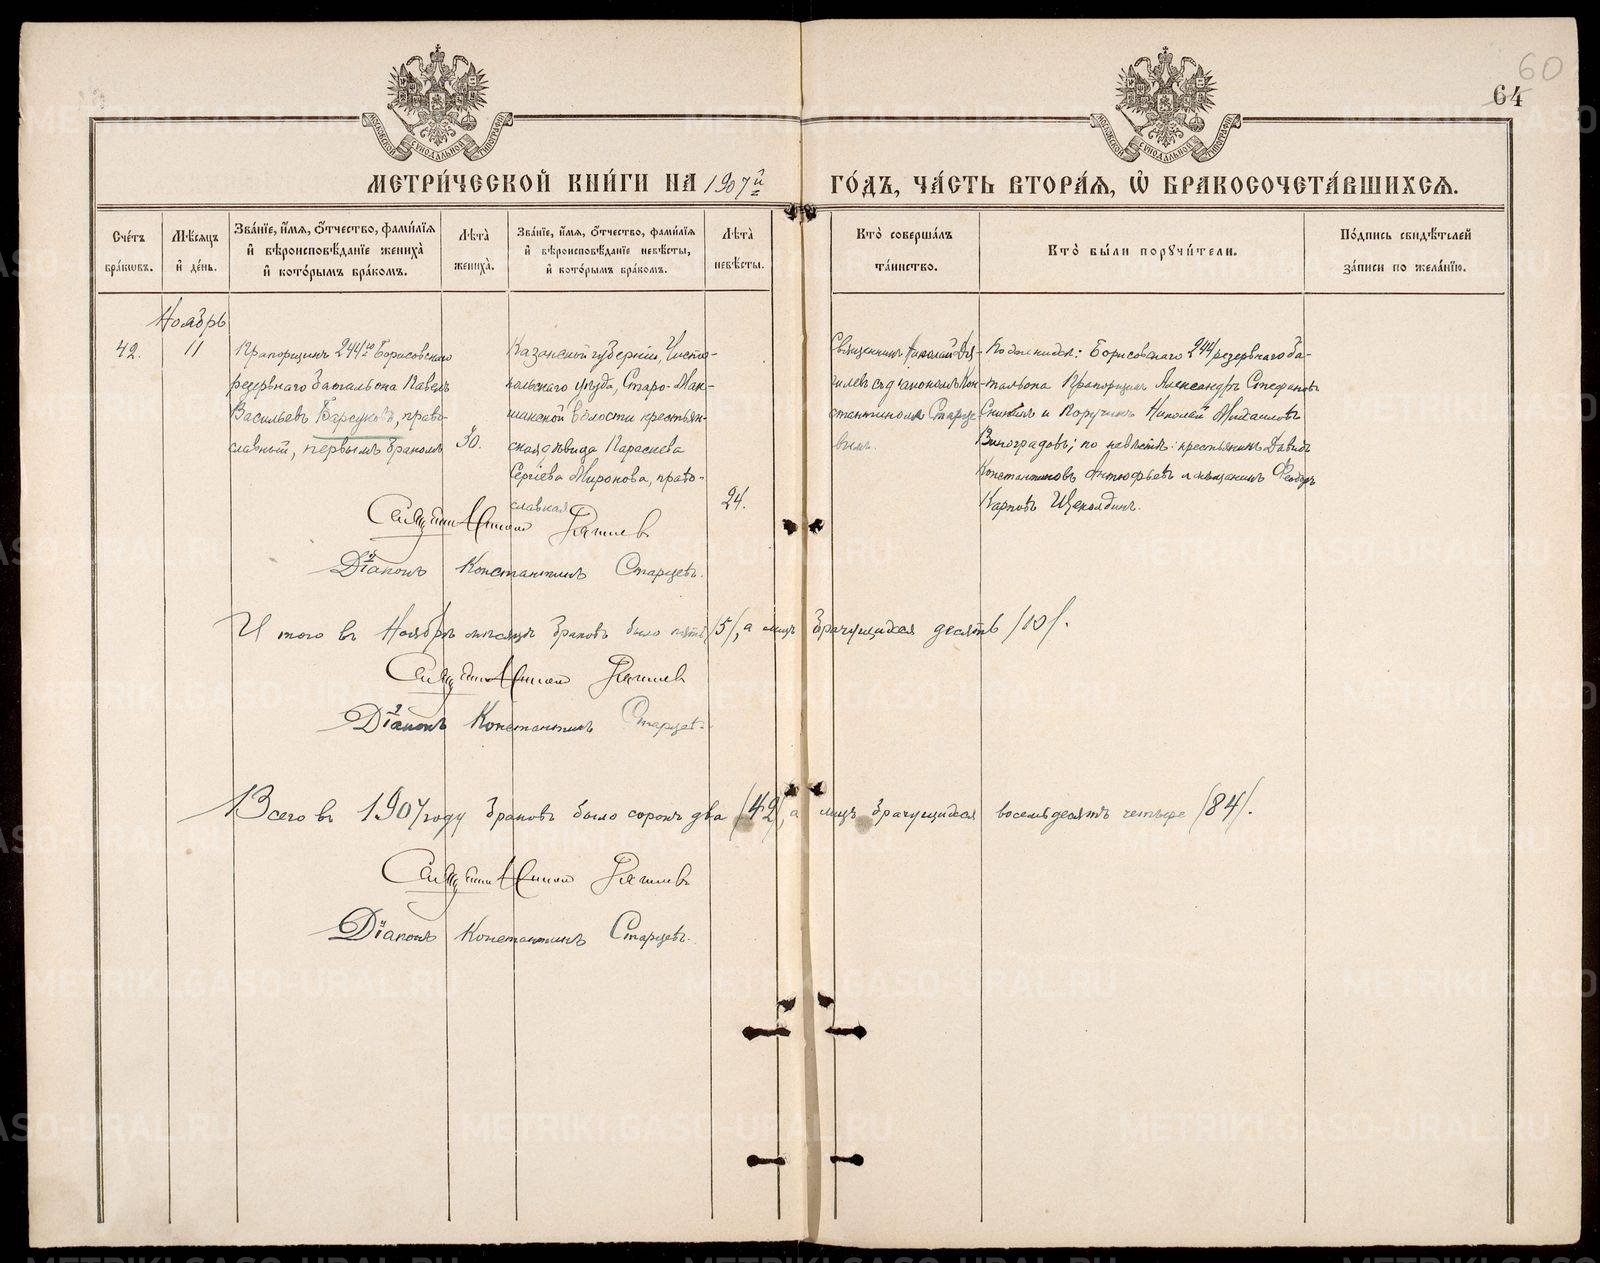 60
64
МОСКОВСКОЙ СѴНОДАЛЬНОЙ ТИПОГРАФІИ
МОСКОВСКОЙ СѴНОДАЛЬНОЙ ТИПОГРАФІИ
МЕТРИ́ЧЕСКОЙ КНИ́ГИ НА 1907й
ГО́ДЪ, ЧА́СТЬ ВТОРА́Я, Ѡ҆ БРАКОСОЧЕТА́ВШИХСЯ.
Сче́тъ бра́кѡвъ.
Мѣ́сяцъ и҆ де́нь.
Зва́нїе, и҆́мя, ѻ҆́тчество, фами́лїя и҆ вѣроисповѣ́данїе жениха̀ и҆ кото́рымъ бра́комъ.
Лѣ́та жениха̀.
Зва́нїе, и҆́мя, ѻ҆́тчество, фами́лїя и҆ вѣроисповѣ́данїе невѣ́сты, и҆ кото́рымъ бра́комъ.
Лѣ́та невѣ́сты.
Кто̀ соверша́лъ та́инство.
Кто̀ бы́ли порꙋчи́тели.
По́дпись свидѣ́телей за́писи по жела́нїю.
Ноябрь
42.
11
Прапорщикъ 244го Борисовскаго
резервнаго баталіона Павелъ
Васильевъ Барсуковъ, право-
славный, первымъ бракомъ
30.
Казанской губерніи, Чисто-
польскаго уѣзда, Старо-
волости крестьян-
ская дѣвица Параскева
Сергіева Миронова, право-
славная
24.
Священникъ Николай
съ діакономъ Кон-
стантиномъ Старце-
вымъ.
По женихѣ: Борисовскаго 244 резервнаго ба-
таліона Прапорщикъ Александръ Стефановъ
и Поручикъ Николай Михаиловъ
Виноградовъ; по невѣстѣ: крестьянинъ Давидъ
Константиновъ Антюфьевъ и мѣщанинъ Феодоръ
Карповъ Щеколдинъ.
Священникъ Николай
Діаконъ Константинъ Старцевъ.
Итого въ Ноябрѣ мѣсяцѣ браковъ было пять /5/, а лицъ брачущихся десять /10/.
Священникъ Николай
Діаконъ Константинъ Старцевъ.
Всего въ 1907 году браковъ было сорокъ два /42/, а лицъ брачущихся восемьдесятъ четыре /84/.
Священникъ Николай
Діаконъ Константинъ Старцевъ.
METRIKI.GASO-URAL.RU